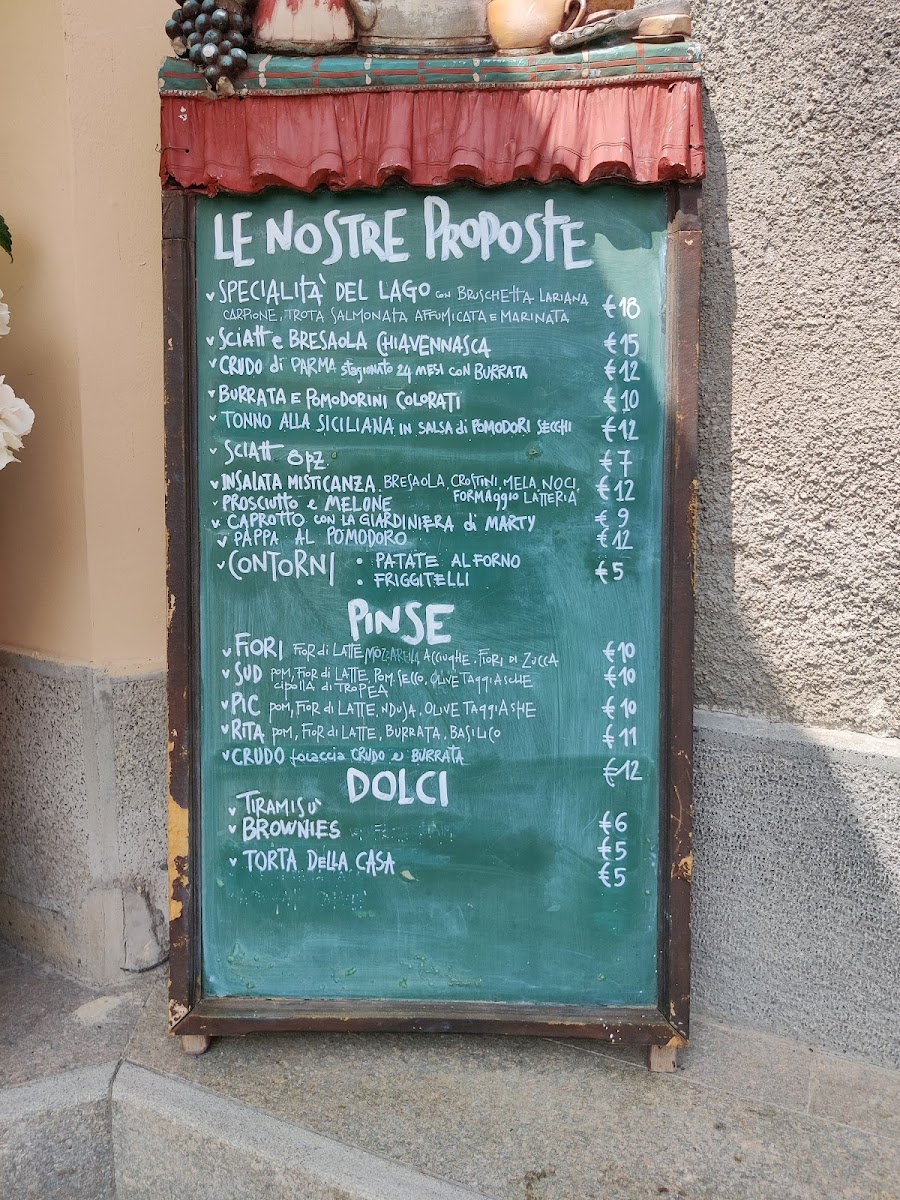 LE NOSTRE PROPOSTE
SPECIALITÀ DEL LAGO CON BRUSCHETTA LARIANA €18
CARPIONE, TROTA SALMONATA AFFUMICATA E MARINATA
SCIATT e BRESAOLA CHIAVENNASCA €15
CRUDO di PARMA stagionato 24 MESI CON BURRATA €12
BURRATA E POMODORINI COLORATI €10
TONNO ALLA SICILIANA IN SALSA di POMODORI SECCHI €12
SCIATT 8 PZ €7
INSALATA MISTICANZA, BRESAOLA, CROSTINI, MELA, NOCI, €12
FORMAGGIO LATTERIA
PROSCIUTTO e MELONE €9
CAPROTTO CON LA GIARDINIERA di MARTY €12
PAPPA AL POMODORO
CONTORNI : PATATE AL FORNO €5
: FRIGGITELLI
PINSE
FIORI FIOR di LATTE MOZZARELLA ACCIUGHE. FIORI DI ZUCCA €10
SUD POM, FIOR di LATTE, POM. SECCO, OLIVE TAGGIASCHE €10
CIPOLLA di TROPEA
PIC POM, FIOR di LATTE, NDUJA, OLIVE TAGGIASHE €10
RITA POM, FIOR di LATTE, BURRATA, BASILICO €11
CRUDO focaccia CRUDO e BURRATA €12
DOLCI
TIRAMISU' €6
BROWNIES €5
TORTA DELLA CASA €5